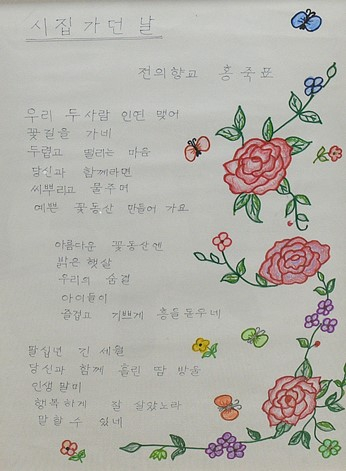 시집 가던 날
전의향교 홍죽표
우리 두사람 인연 맺어
꽃길을 가네
두렵고 떨리는 마음
당신과 함께라면
씨뿌리고 물주며
예쁜 꽃동산 만들어 가요
아름다운 꽃동산엔
밝은 햇살
우리의 숨결
아이들이
즐겁고 기쁘게 흥을돋우네
팔십년 긴 세월
당신과 함께 흘린 땀 방울
인생 말미
행복하게 잘 살았노라
말할 수 있네